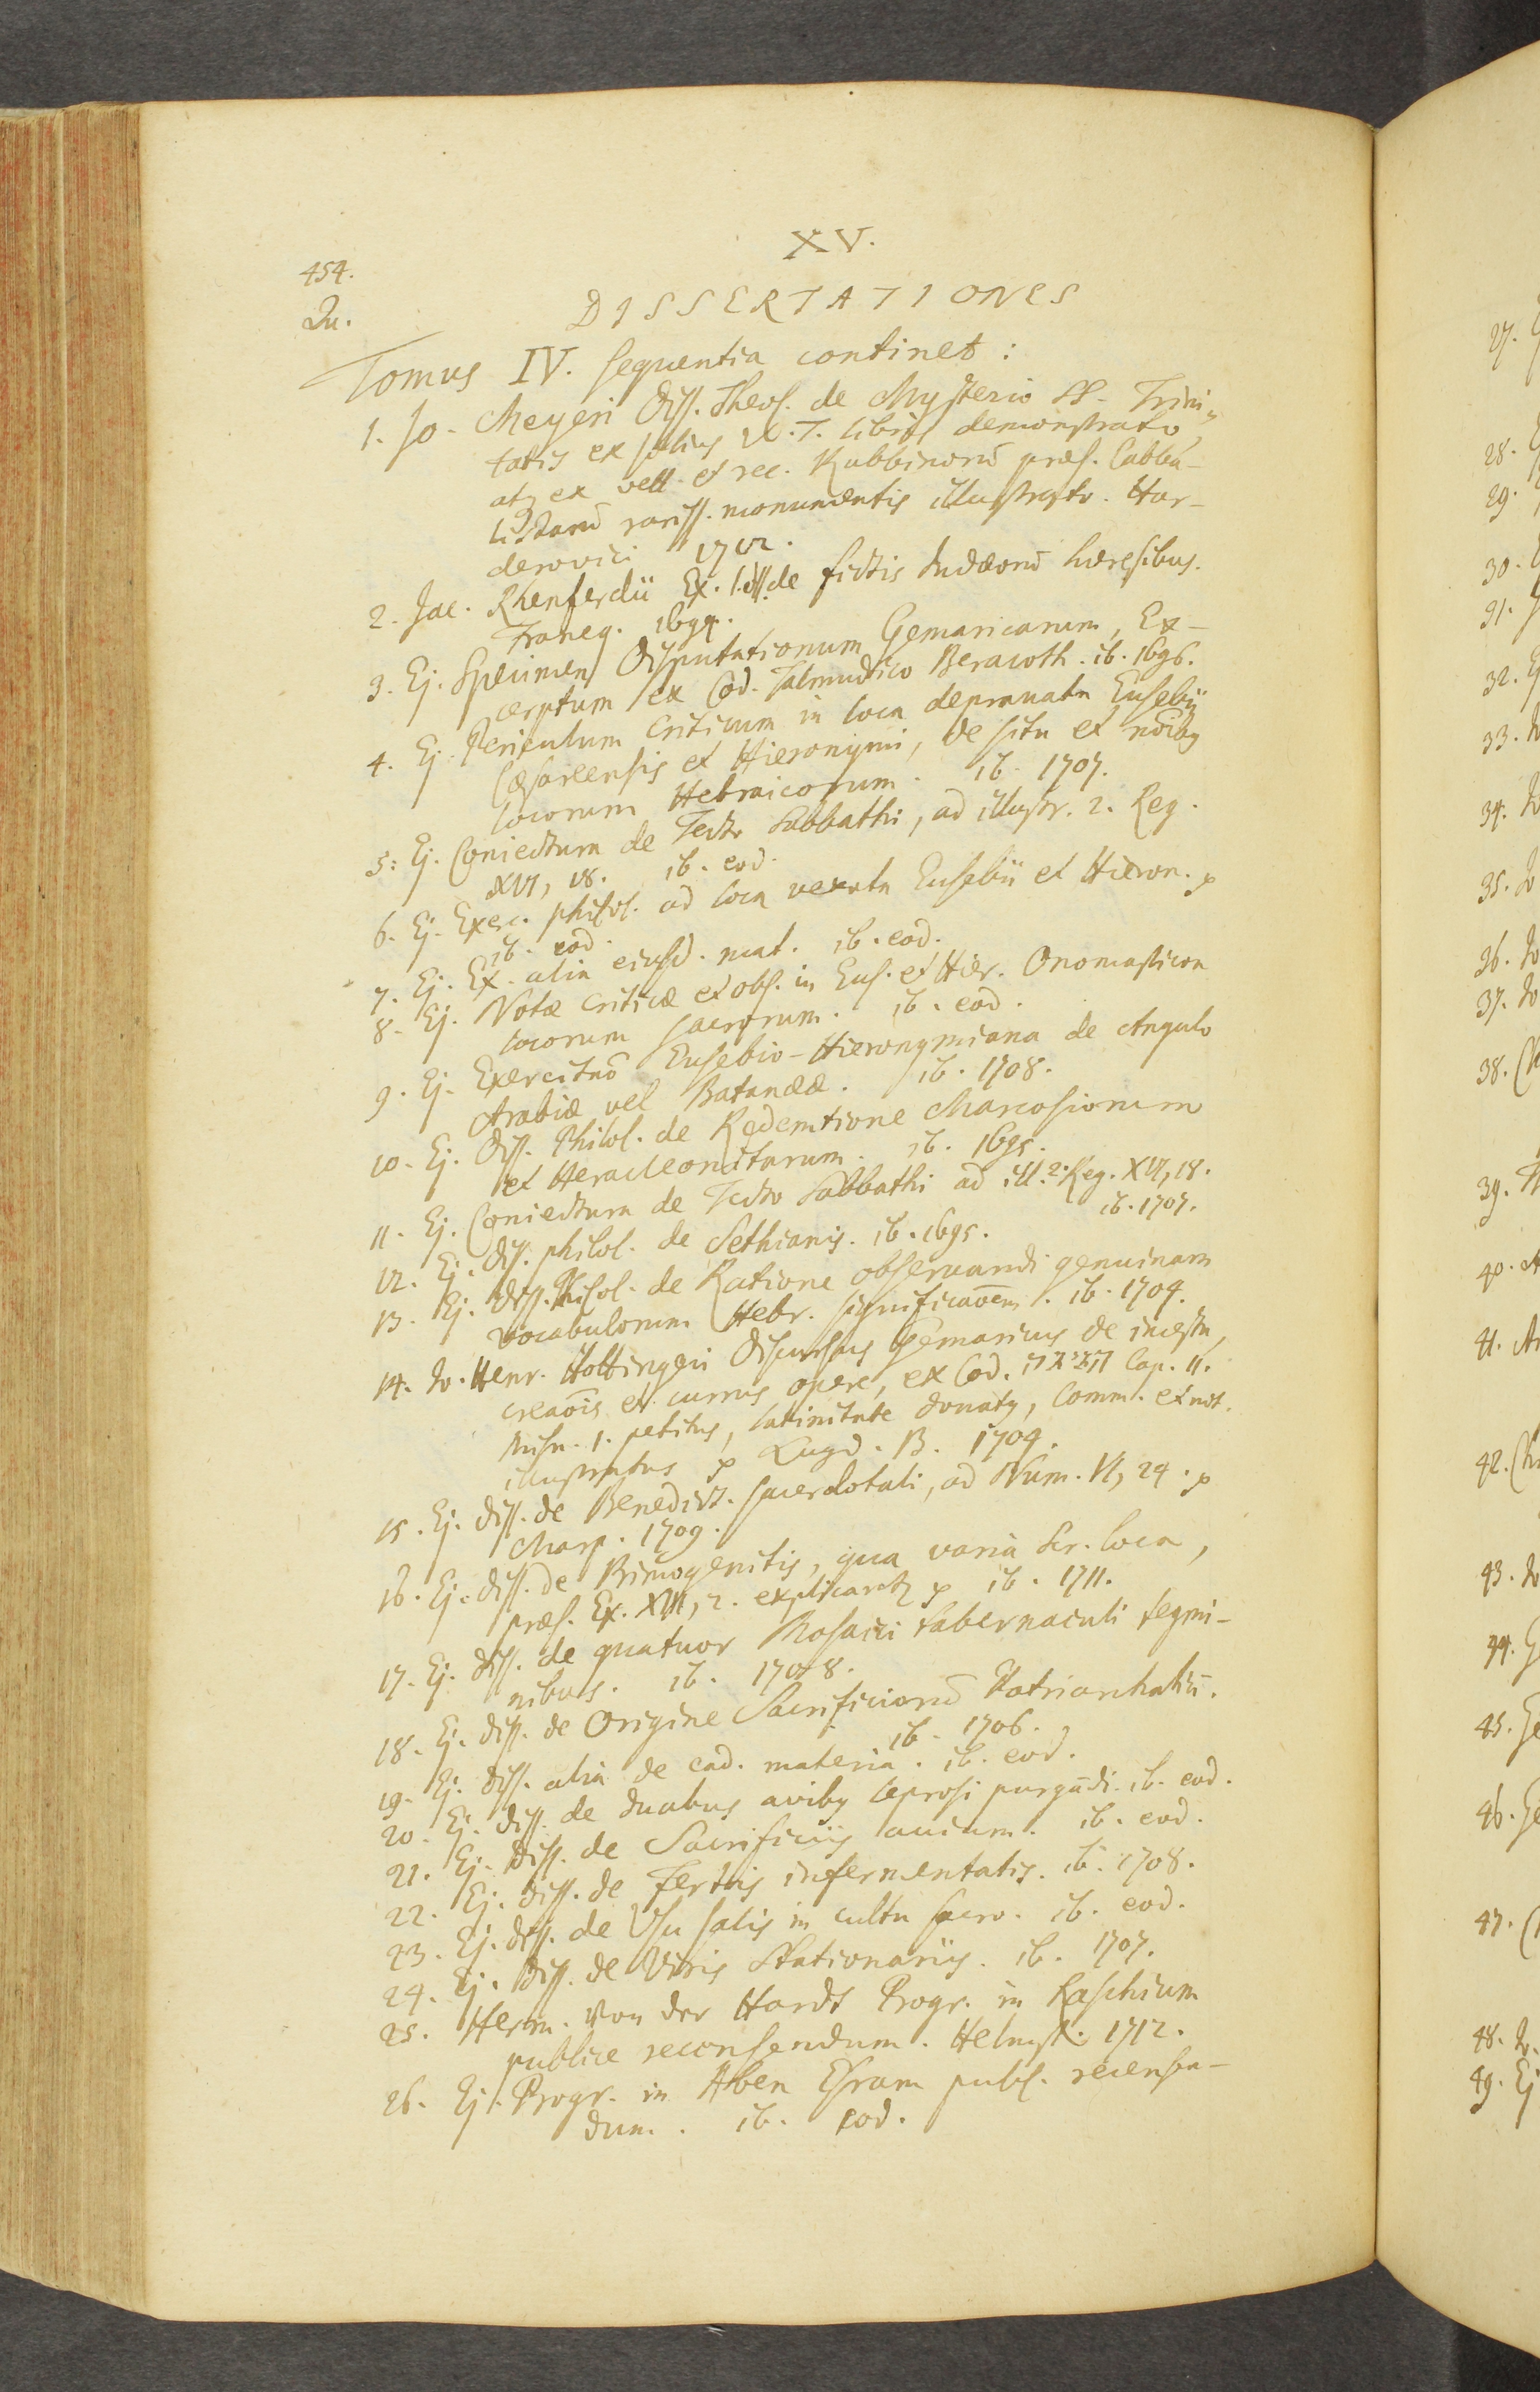 XV.
454.
Qu.
DISSERTATIONES
Tomus IV. sequentia continet:
1. Jo. Meyeri Diss. Theol. de Mysterio SS. Trini-
tatis ex solius V.T. libris demonstrato
atq ex vett. et rec. Rabbinorū præs. Cabba-
listarū rariss. monumentis illustrato. Har-
derovici 1712.
2. Jac. Rhenferdii Ex. 1. diss. de fictis Judæorū hæresibus.
Franeq. 1694.
3. Ej. Specimen Disputationum Gemaricarum, Ex-
cerptum ex Cod. Talmudico Beracoth. ib. 1696.
4. Ej. Periculum Criticum in loca depravata Eusebii
Cæsareensis et Hieronymi, de situ et nōībq
locorum Hebraicorum. ib. 1707.
5. Ej. Coniectura de Tecto Sabbathi, ad illustr. 2. Reg.
XVI, 18. ib. eod.
6. Ej. Exerc. philol. ad loca vexata Eusebii et Hieron. p
ib. eod.
7. Ej. Ex. alia eiusd. mat. ib. eod.
8. Ej. Notæ criticæ et obs. in Eus. et Hier. Onomasticon
locorum sacrorum. ib. eod.
9. Ej. Exercitaō Eusebio-Hieronymiana de Angulo
Arabiæ vel Batanææ. ib. 1708.
10. Ej. Diss. Philol. de Redemtione Marcosiorum
et Heracleonitarum. ib. 1695.
11. Ej. Coniectura de Tecto Sabbathi ad ill. 2. Reg. XVI, 18.
ib. 1707.
12. Ej. diss. philol. de Sethianis. ib. 1695.
13. Ej. Diss. Philol. de Ratione observandi genuinam
vocabulorum Hebr. significaōem. ib. 1704.
14. Jo. Henr. Hottingeri Discursus Gemaricus de incestu,
creaōīs et currus opere, ex Cod. חגיגה Cap. 11.
Misn. 1. petitus, latinitate donatq, Comm. et not.
illustratus p Lugd. B. 1704.
15. Ej. diss. de Benedict. sacerdotali, ad Num. VI, 24. p
Marp. 1709.
16. Ej. diss. de Primogenitis, qua varia Scr. loca,
præs. Ex. XIII, 2. explicantq p ib. 1711.
17. Ej. diss. de quatuor Mosaici tabernaculi tegmi-
nibus. ib. 1708.
18. Ej. diss. de Origine Sacrificiorū Patriarchaliū.
ib. 1706.
19. Ej. diss. alia de ead. materia. ib. eod.
20. Ej. diss. de duabus avibq leprosi purgādi. ib. eod.
21. Ej. diss. de Sacrificiis avium. ib. eod.
22. Ej. diss. de Fertis infermentatis. ib. 1708.
23. Ej. diss. de Usu salis in cultu sacro. ib. eod.
24. Ej. diss. de Viris Stationariis. ib. 1707.
25. Herm. von der Hardt Progr. in Raschium
publice recensendum. Helmst. 1712.
26. Ej. Progr. in Aben Esram publ. recensen-
dum. ib. eod.
27.
28.
29.
30.
31.
32.
33.
34.
35.
36.
37.
38.
39.
40.
41.
42.
43.
44.
45.
46.
47.
48.
49. Ej